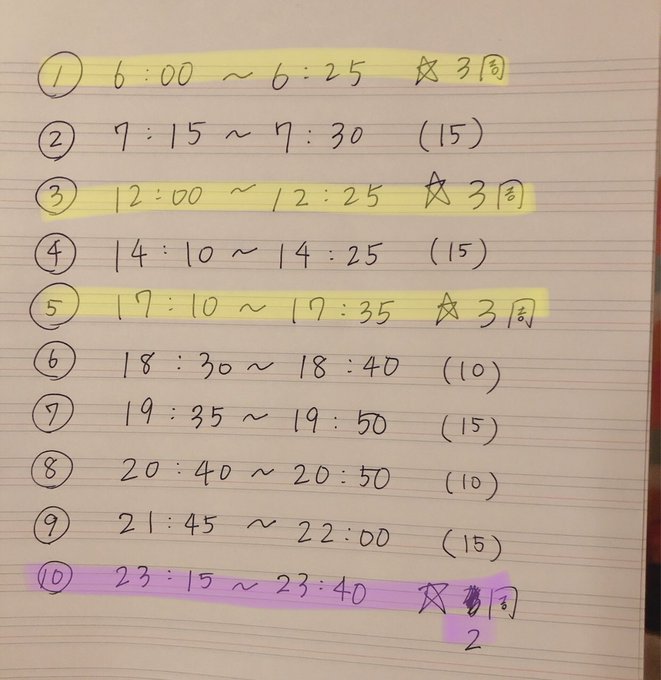 ① 6:00 ~ 6:25 ☆ 3周
② 7:15 ~ 7:30 (15)
③ 12:00 ~ 12:25 ☆ 3周
④ 14:10 ~ 14:25 (15)
⑤ 17:10 ~ 17:35 ☆ 3周
⑥ 18:30 ~ 18:40 (10)
⑦ 19:35 ~ 19:50 (15)
⑧ 20:40 ~ 20:50 (10)
⑨ 21:45 ~ 22:00 (15)
⑩ 23:15 ~ 23:40 ☆ 周
2